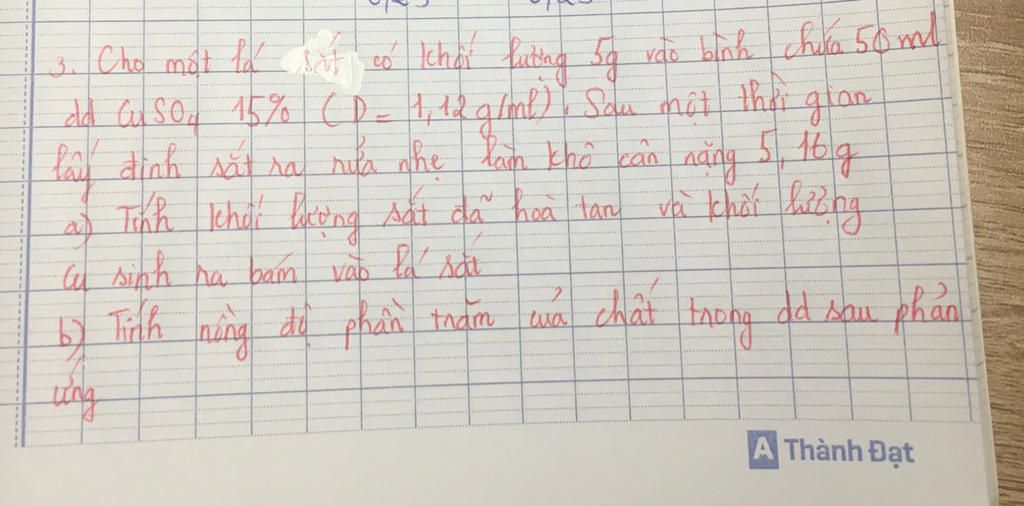 3. Cho một lá sắt có khối lượng 5g vào bình chứa 50 ml
dd CuSO4 15% (D = 1,12 g/ml). Sau một thời gian
lấy đinh sắt ra rửa nhẹ làm khô cân nặng 5,16g
a) Tính khối lượng sắt đã hoà tan và khối lượng
Cu sinh ra bám vào lá sắt
b) Tính nồng độ phần trăm của chất trong dd sau phản
ứng
A Thành Đạt